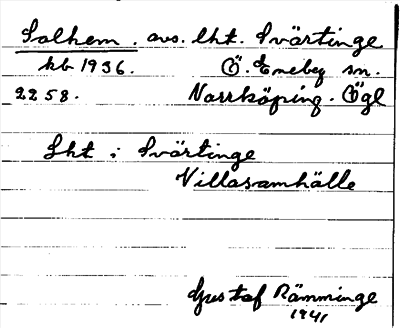 Solhem. avs. lht. Svärtinge
kb 1936. Ö. Eneby sn.
2258. Norrköping. Ögl
Lht i Svärtinge
Villasamhälle
Gustaf Rämminge
1941